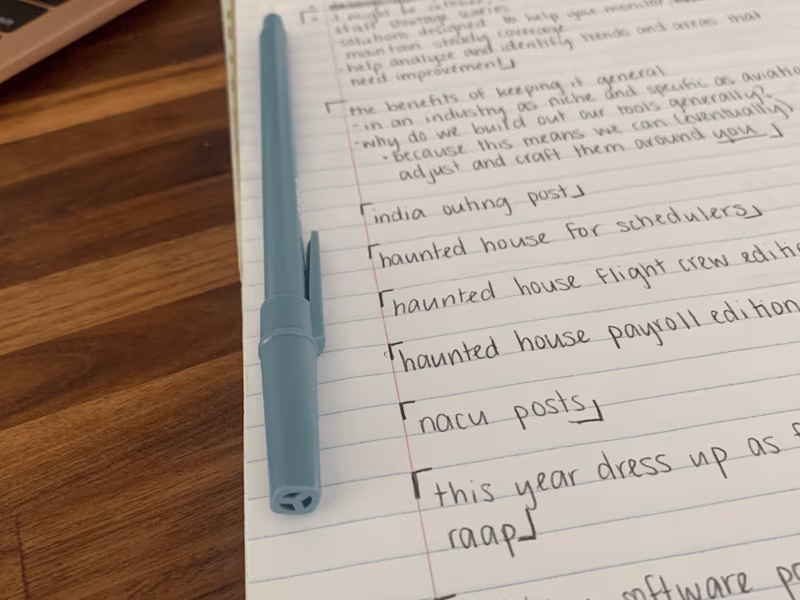 ⌜I might be
staff shortage
solutions designed to help you monitor
maintain steady coverage
-help analyze and identify trends and areas that
need improvement⌟
⌜the benefits of keeping it general
-in an industry as niche and specific as
-why do we build out our tools generally?
•because this means we can (eventually)
adjust and craft them around you⌟
⌜india outing post⌟
⌜haunted house for schedulers⌟
⌜haunted house flight crew
⌜haunted house payroll edition
⌜nacu posts⌟
⌜this year dress up as
raap⌟
software